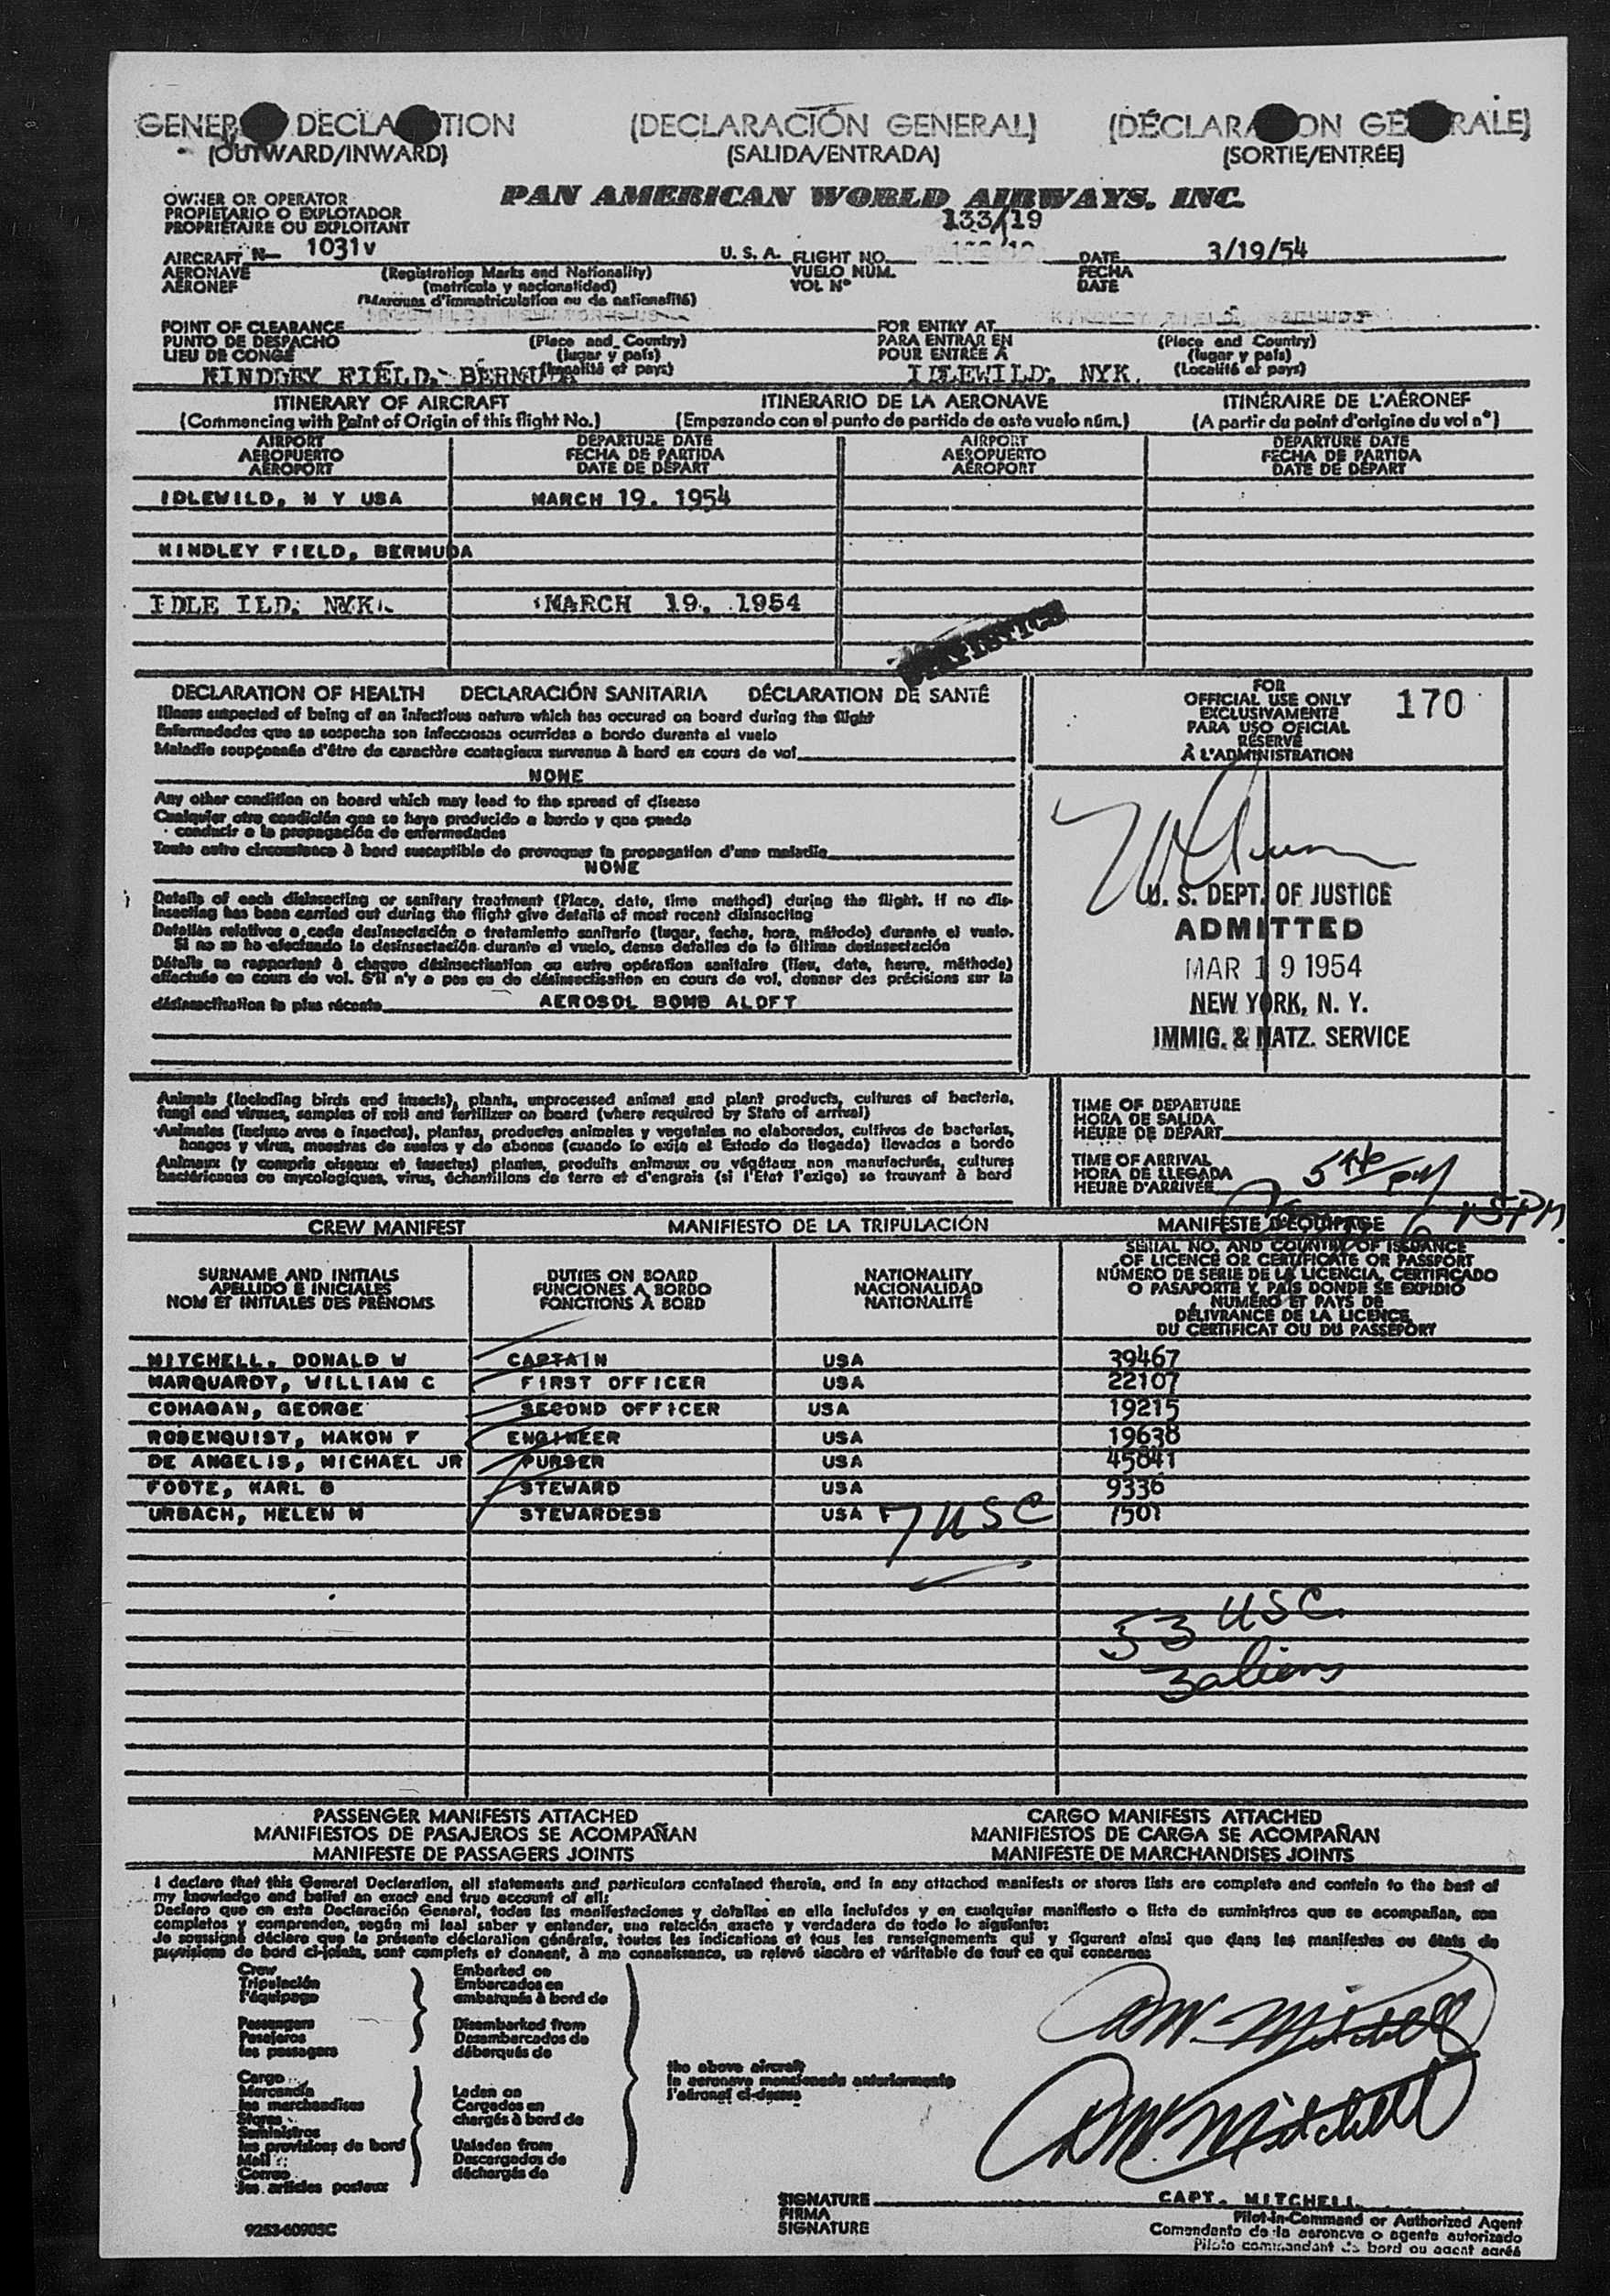 DECLARACIÓN GENERAL
(OUTWARD/INWARD) (SALIDA/ENTRADA) (SORTIE/ENTRÉE)
PAN AMERICAN WORLD AIRWAYS, INC.
OWNER OR OPERATOR
PROPIETARIO O EXPLOTADOR
PROPRIETAIRE OU EXPLOITANT
133/19
AIRCRAFT N— 1031V U. S. A. FLIGHT NO. DATE 3/19/54
AERONAVE (Registration Marks and Nationality) VUELO NUM. FECHA
AERONEF (matrícula y nacionalidad) VOL Nº DATE
(Marques d'immatriculation ou de nationalité)
POINT OF CLEARANCE FOR ENTRY AT
PUNTO DE DESPACHO (Place and Country) PARA ENTRAR EN (Place and Country)
LIEU DE CONGÉ (lugar y país) POUR ENTRÉE A (lugar y país)
KINDLEY FIELD, BERMUDA (Localité et pays) IDLEWILD, NYK. (Localité et pays)
ITINERARY OF AIRCRAFT ITINERARIO DE LA AERONAVE ITINÉRAIRE DE L'AÉRONEF
(Commencing with Point of Origin of this flight No.) (Empezando con el punto de partida de este vuelo núm.) (A partir du point d'origine du vol nº)
AIRPORT DEPARTURE DATE AIRPORT DEPARTURE DATE
AEROPUERTO FECHA DE PARTIDA AEROPUERTO FECHA DE PARTIDA
AÉROPORT DATE DE DÉPART AÉROPORT DATE DE DÉPART
IDLEWILD, N Y USA MARCH 19. 1954
KINDLEY FIELD, BERMUDA
IDLE ILD, NYK. MARCH 19. 1954
STATISTICS
DECLARATION OF HEALTH DECLARACIÓN SANITARIA DÉCLARATION DE SANTÉ
Illness suspected of being of an infectious nature which has occured on board during the flight
Enfermedades que se sospecha son infecciosas ocurridas a bordo durante el vuelo
Maladie soupçonnée d'être de caractère contagieux survenue à bord en cours de vol
NONE
Any other condition on board which may lead to the spread of disease
Cualquier otra condición que se haya producido a bordo y que pueda
conducir a la propagación de enfermedades
Toute autre circonstance à bord susceptible de provoquer la propagation d'une maladie
NONE
Details of each disinsecting or sanitary treatment (Place, date, time method) during the flight. If no dis-
insecting has been carried out during the flight give details of most recent disinsecting
Detalles relativos a cada desinsectación o tratamiento sanitario (lugar, fecha, hora, método) durante el vuelo.
Si no se ha efectuado la desinsectación durante el vuelo, dense detalles de la última desinsectación
Détails se rapportant à chaque désinsectisation ou autre opération sanitaire (lieu, date, heure, méthode)
effectuée en cours de vol. S'il n'y a pas eu de désinsectisation en cours de vol, donner des précisions sur la
désinsectisation la plus récente AEROSOL BOMB ALOFT
FOR
OFFICIAL USE ONLY 170
EXCLUSIVAMENTE
PARA USO OFICIAL
RÉSERVÉ
À L'ADMINISTRATION
U. S. DEPT. OF JUSTICE
ADMITTED
MAR 19 1954
NEW YORK, N. Y.
IMMIG. & NATZ. SERVICE
Animals (including birds and insects), plants, unprocessed animal and plant products, cultures of bacteria,
fungi and viruses, samples of soil and fertilizer on board (where required by State of arrival)
Animales (incluso aves e insectos), plantas, productos animales y vegetales no elaborados, cultivos de bacterias,
hongos y virus, muestras de suelos y de abonos (cuando lo exija el Estado de llegada) llevados a bordo
Animaux (y compris oiseaux et insectes) plantes, produits animaux ou végétaux non manufacturés, cultures
bactériennes ou mycologiques, virus, échantillons de terre et d'engrais (si l'Etat l'exige) se trouvant à bord
TIME OF DEPARTURE
HORA DE SALIDA
HEURE DE DÉPART
TIME OF ARRIVAL
HORA DE LLEGADA
HEURE D'ARRIVÉE
CREW MANIFEST MANIFIESTO DE LA TRIPULACIÓN MANIFESTE D'ÉQUIPAGE
SURNAME AND INITIALS
APELLIDO E INICIALES
NOM ET INITIALES DES PRÉNOMS
DUTIES ON BOARD
FUNCIONES A BORDO
FONCTIONS À BORD
NATIONALITY
NACIONALIDAD
NATIONALITÉ
SERIAL NO. AND COUNTRY OF ISSUANCE
OF LICENCE OR CERTIFICATE OR PASSPORT
NÚMERO DE SERIE DE LA LICENCIA, CERTIFICADO
O PASAPORTE Y PAÍS DONDE SE EXPIDIÓ
NUMÉRO ET PAYS DE
DÉLIVRANCE DE LA LICENCE,
DU CERTIFICAT OU DU PASSEPORT
MITCHELL, DONALD W CAPTAIN USA 39467
MARQUARDT, WILLIAM C FIRST OFFICER USA 22107
COHAGAN, GEORGE SECOND OFFICER USA 19215
ROSENQUIST, HAKON F ENGINEER USA 19638
DE ANGELIS, MICHAEL JR PURSER USA 45841
FOOTE, KARL B STEWARD USA 9336
URBACH, HELEN M STEWARDESS USA 7501
7 USC
53 USC
3 aliens
PASSENGER MANIFESTS ATTACHED CARGO MANIFESTS ATTACHED
MANIFIESTOS DE PASAJEROS SE ACOMPAÑAN MANIFIESTOS DE CARGA SE ACOMPAÑAN
MANIFESTE DE PASSAGERS JOINTS MANIFESTE DE MARCHANDISES JOINTS
I declare that this General Declaration, all statements and particulars contained therein, and in any attached manifests or stores lists are complete and contain to the best of
my knowledge and belief an exact and true account of all:
Declaro que en esta Declaración General, todas las manifestaciones y detalles en ella incluídos y en cualquier manifiesto o lista de suministros que se acompañan, son
completos y comprenden, según mi leal saber y entender, una relación exacta y verdadera de todo lo siguiente:
Je soussigné déclare que la présente déclaration générale, toutes les indications et tous les renseignements qui y figurent ainsi que dans les manifestes ou états de
provisions de bord ci-joints, sont complets et donnent, à ma connaissance, un relevé sincère et véritable de tout ce qui concerne:
Crew Embarked on
Tripulación Embarcados en
l'équipage embarqués à bord de
Passengers Disembarked from
Pasajeros Desembarcados de
les passagers débarqués de
the above aircraft
la aeronave mencionada anteriormente
l'aéronef ci-dessus
Cargo
Mercancía Laden on
les marchandises Cargados en
Stores chargés à bord de
Suministros
les provisions de bord Unladen from
Mail Descargados de
Correo déchargés de
les articles postaux
DW Mitchell
DW Mitchell
SIGNATURE CAPT. MITCHELL
FIRMA Pilot-in-Command or Authorized Agent
SIGNATURE Comandante de la aeronave o agente autorizado
Pilote commandant de bord ou agent agréé
9253-60905C